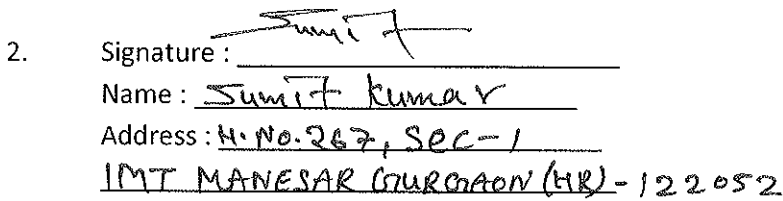 2. Signature : Sumit
Name : Sumit Kumar
Address : H. No. 267, Sec-1
IMT MANESAR GURGAON (HR) - 122052